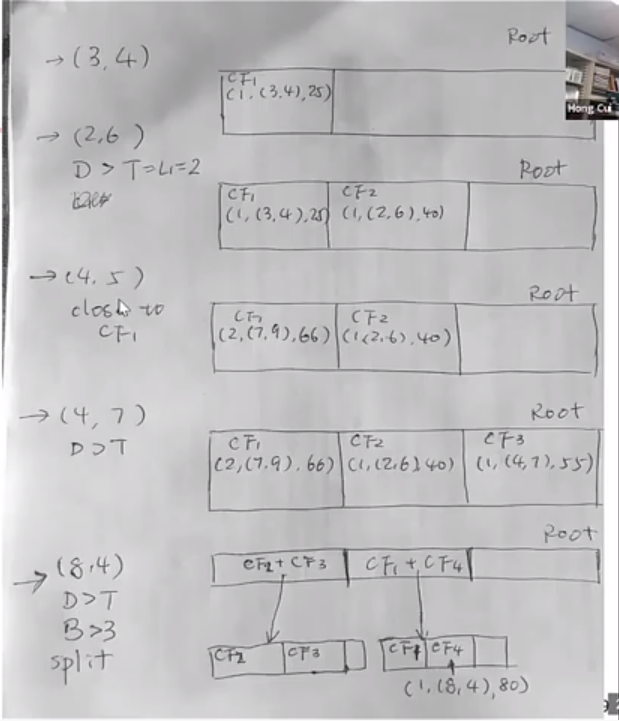 Root
→ (3,4)
CF1
(1, (3,4), 25)
Hong Cui
→ (2,6)
D > T=L1=2
Root
CF1
(1, (3,4), 25
CF2
(1, (2,6), 40)
→ (4,5)
close to
CF1
Root
CF1
(2, (7,9), 66)
CF2
(1(2,6), 40)
→ (4,7)
D>T
Root
CF1
(2, (7,9), 66)
CF2
(1, (2,6) 40)
CF3
(1, (4,7), 55)
→ (8,4)
D>T
B>3
split
Root
CF2 + CF3
CF1 + CF4
CF2
CF3
CF1
CF4
(1, (8,4), 80)